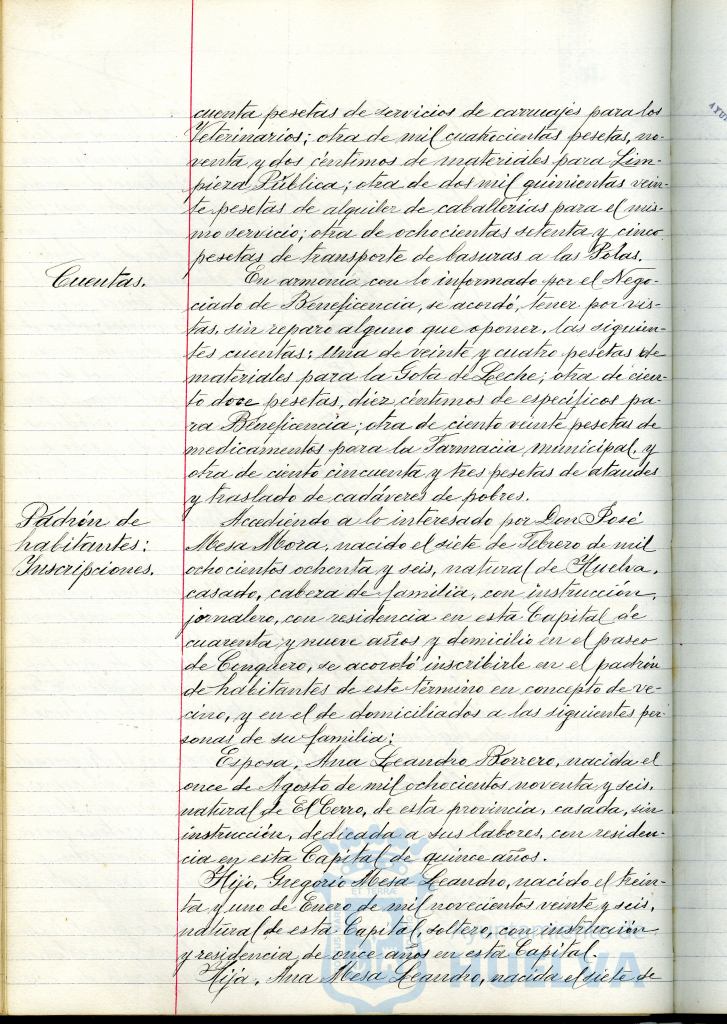 cuenta pesetas de servicios de carruajes para los
Veterinarios; otra de mil cuatrocientas pesetas, no-
venta y dos céntimos de materiales para Lim-
pieza Pública; otra de dos mil quinientas vein-
te pesetas de alquiler de caballerías para el mis-
mo servicio; otra de ochocientas setenta y cinco
pesetas de transporte de basuras a las Polas.
Cuentas.
En armonía con lo informado por el Nego-
ciado de Beneficencia, se acordó, tener por vis-
tas, sin reparo alguno que oponer, las siguien-
tes cuentas: Una de veinte y cuatro pesetas de
materiales para la Gota de Leche; otra de cien-
to doce pesetas, diez céntimos de específicos pa-
ra Beneficencia; otra de ciento veinte pesetas de
medicamentos para la Farmacia municipal, y
otra de ciento cincuenta y tres pesetas de ataudes
y traslado de cadáveres de pobres.
Padrón de
habitantes:
Inscripciones.
Accediendo a lo interesado por Don José
Mesa Mora, nacido el siete de Febrero de mil
ochocientos ochenta y seis, natural de Huelva,
casado, cabeza de familia, con instrucción,
jornalero, con residencia en esta Capital de
cuarenta y nueve años y domicilio en el paseo
de Conquero, se acordó inscribirle en el padrón
de habitantes de este término en concepto de ve-
cino, y en el de domiciliados a las siguientes per-
sonas de su familia:
Esposa, Ana Leandro Borrero, nacida el
once de Agosto de mil ochocientos noventa y seis,
natural de El Cerro, de esta provincia, casada, sin
instrucción, dedicada a sus labores, con residen-
cia en esta Capital de quince años.
Hijo, Gregorio Mesa Leandro, nacido el trein-
ta y uno de Enero de mil novecientos veinte y seis,
natural de esta Capital, soltero, con instrucción
y residencia de once años en esta Capital.
Hija, Ana Mesa Leandro, nacida el siete de
Ayuntamiento de
HUELVA